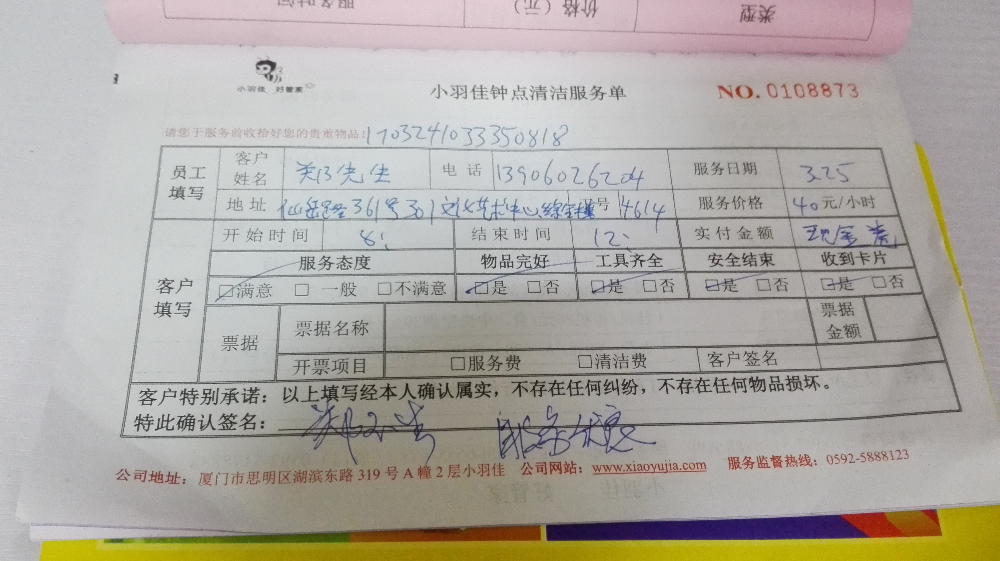 类型 价格（元） 服务时间
小羽佳 好管家
小羽佳钟点清洁服务单 NO. 0108873
请您于服务前收拾好您的贵重物品: 1703241033350818
员工填写 客户姓名 郑先生 电话 13906026204 服务日期 3.25
地址 仙岳路361号301文化艺术中心综合楼 号 4614 服务价格 40元/小时
开始时间 8: 结束时间 12: 实付金额 现金
客户填写 服务态度 物品完好 工具齐全 安全结束 收到卡片
☑满意 □一般 □不满意 ☑是 □否 ☑是 □否 ☑是 □否 ☑是 □否
票据 票据名称 票据金额
开票项目 □服务费 □清洁费 客户签名
客户特别承诺：以上填写经本人确认属实，不存在任何纠纷，不存在任何物品损坏。
特此确认签名：
公司地址：厦门市思明区湖滨东路 319 号 A 幢 2 层小羽佳 公司网站：www.xiaoyujia.com 服务监督热线：0592-5888123